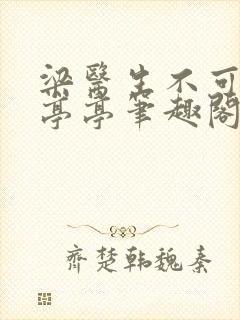 梁醫生不可
亭亭筆趣閣
齊楚韓魏秦